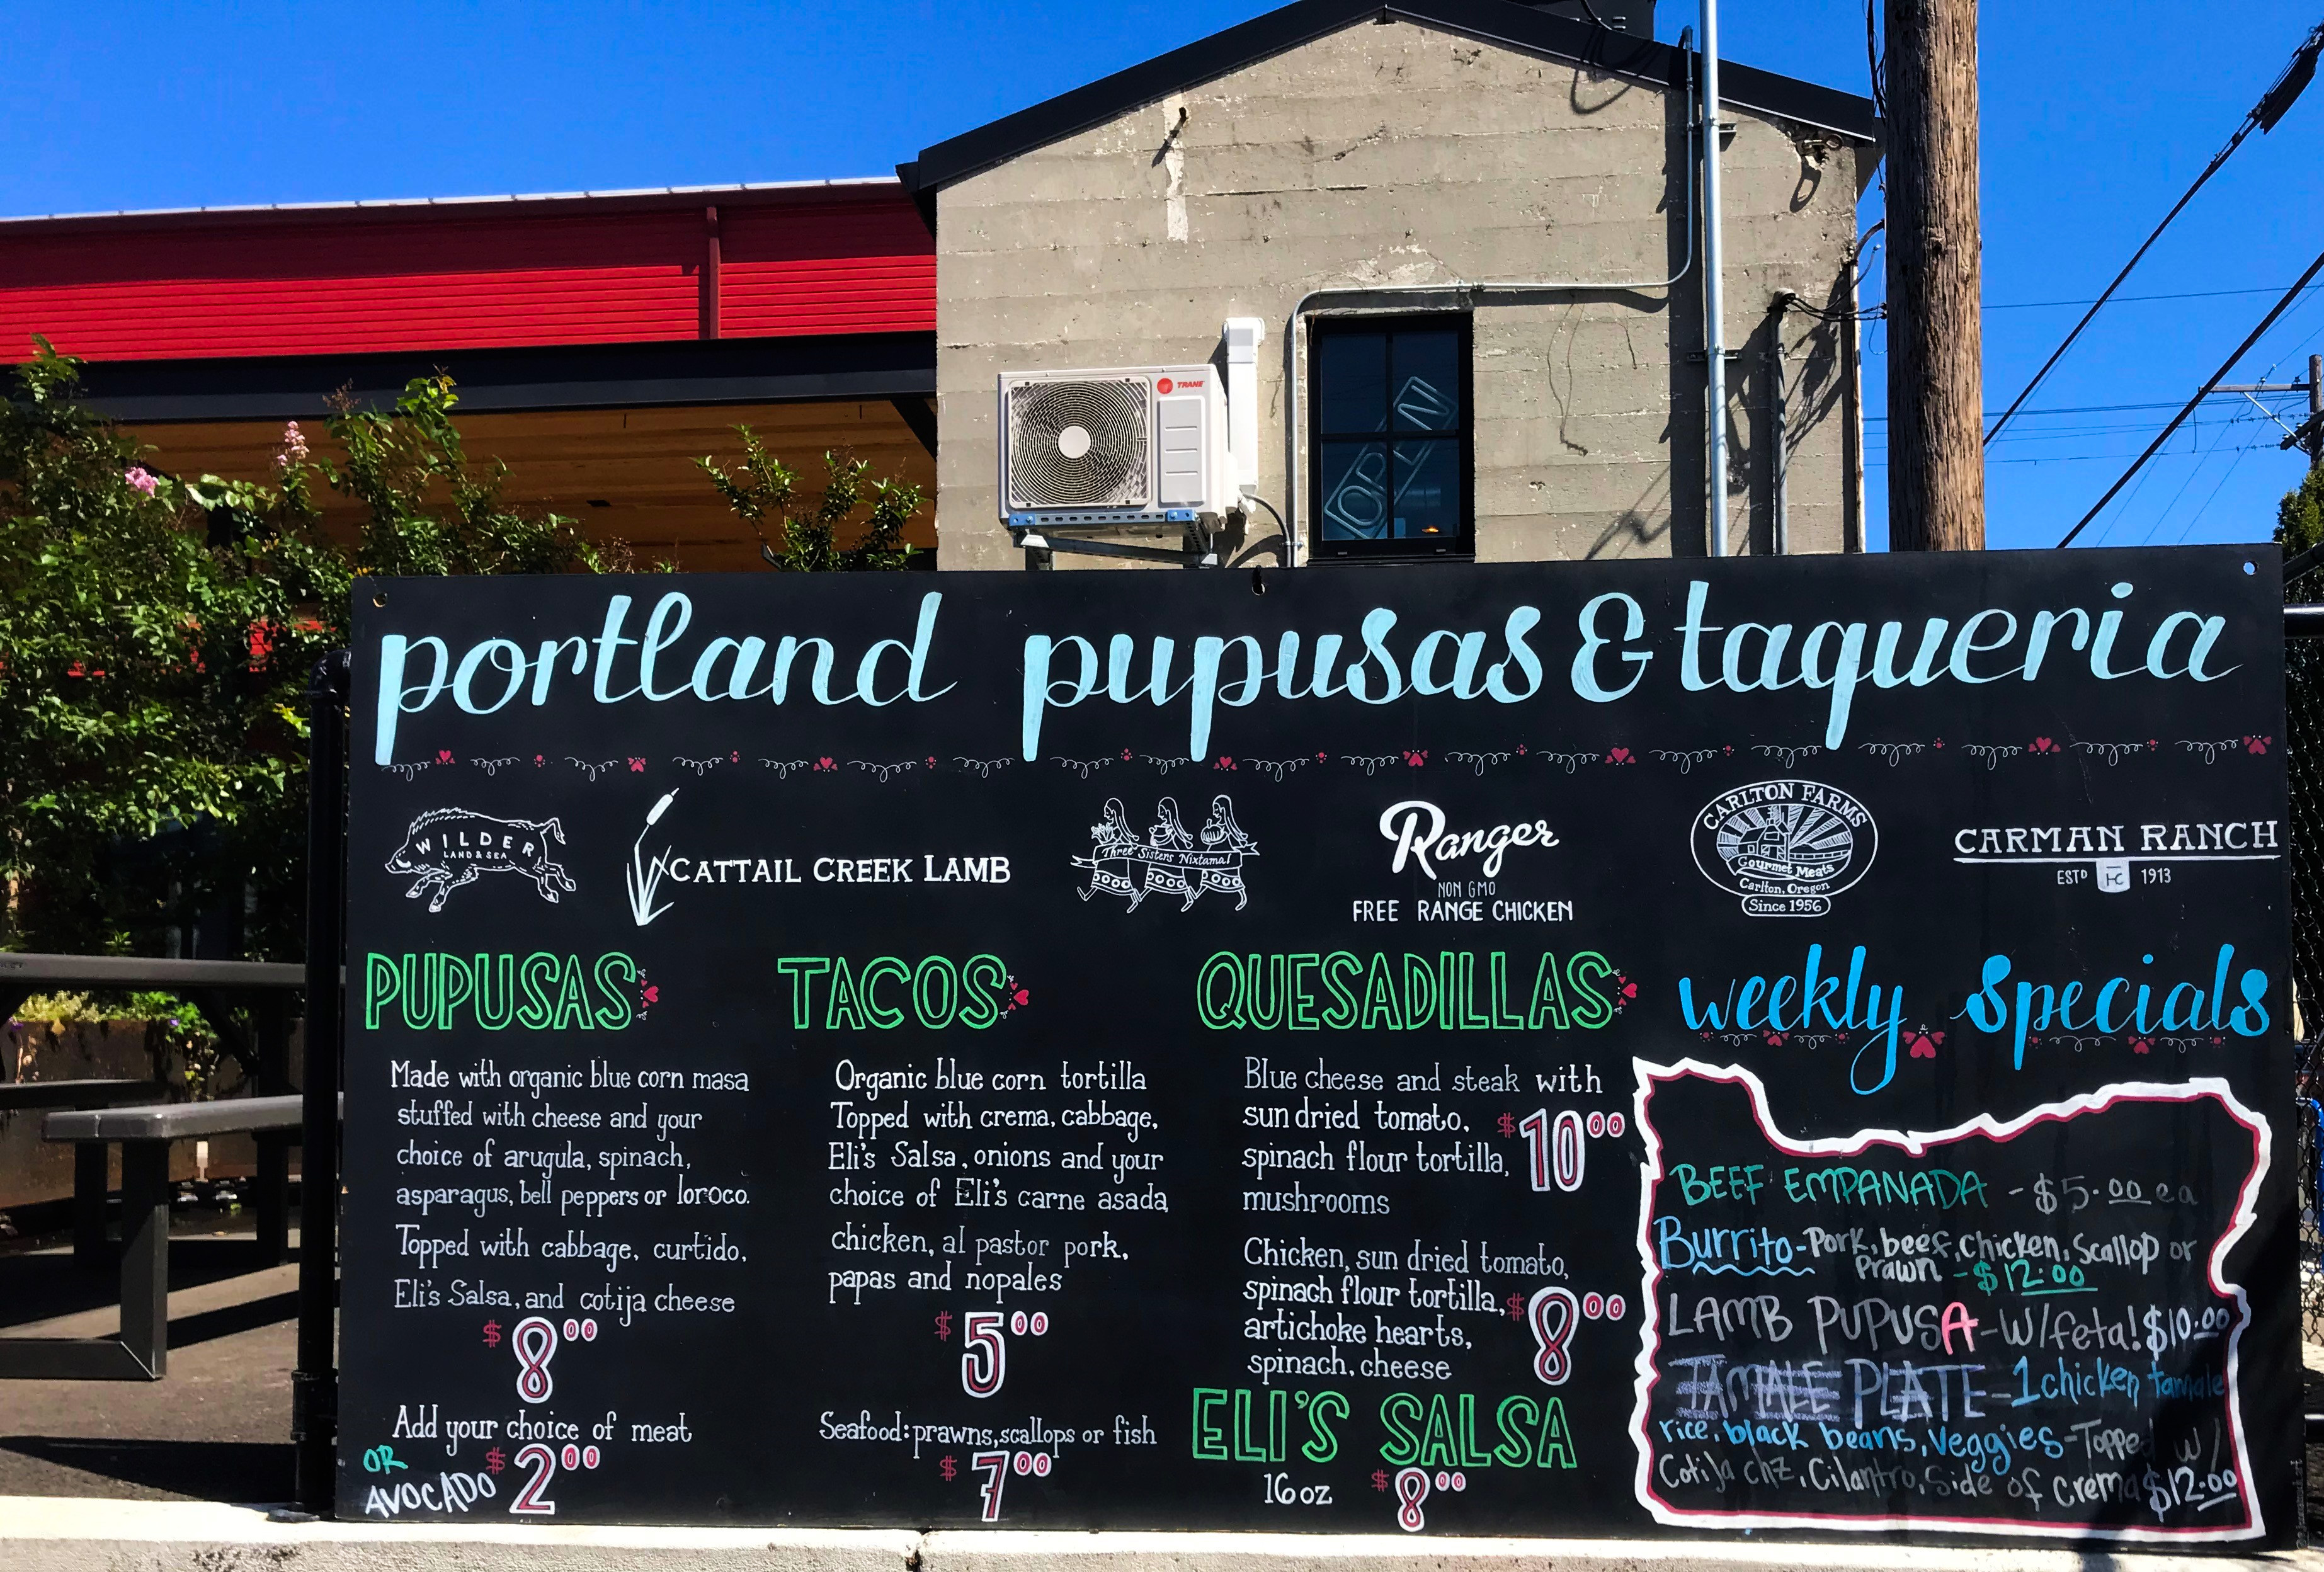 TRANE
OPEN
portland pupusas & taqueria
WILDER
LAND & SEA
CATTAIL CREEK LAMB
Three Sisters Nixtamal
Ranger
NON GMO
FREE RANGE CHICKEN
CARLTON FARMS
Gourmet Meats
Carlton, Oregon
Since 1956
CARMAN RANCH
ESTD 1913
PUPUSAS
Made with organic blue corn masa
stuffed with cheese and your
choice of arugula, spinach,
asparagus, bell peppers or loroco.
Topped with cabbage, curtido,
Eli's Salsa, and cotija cheese
$8.00
Add your choice of meat
OR
AVOCADO
$2.00
TACOS
Organic blue corn tortilla
Topped with crema, cabbage,
Eli's Salsa, onions and your
choice of Eli's carne asada
chicken, al pastor pork,
papas and nopales
$5.00
Seafood: prawns, scallops or fish
$7.00
QUESADILLAS
Blue cheese and steak with
sun dried tomato,
spinach flour tortilla,
mushrooms
$10.00
Chicken, sun dried tomato,
spinach flour tortilla,
artichoke hearts,
spinach, cheese
$8.00
ELI'S SALSA
16 oz $8.00
weekly specials
BEEF EMPANADA - $5.00 ea
Burrito - Pork, beef, Chicken, Scallop or
Prawn - $12.00
LAMB PUPUSA - W/feta! $10.00
TAMALE PLATE - 1 chicken tamale
rice, black beans, Veggies - Topped w/
Cotija chz, Cilantro, Side of Crema $12.00